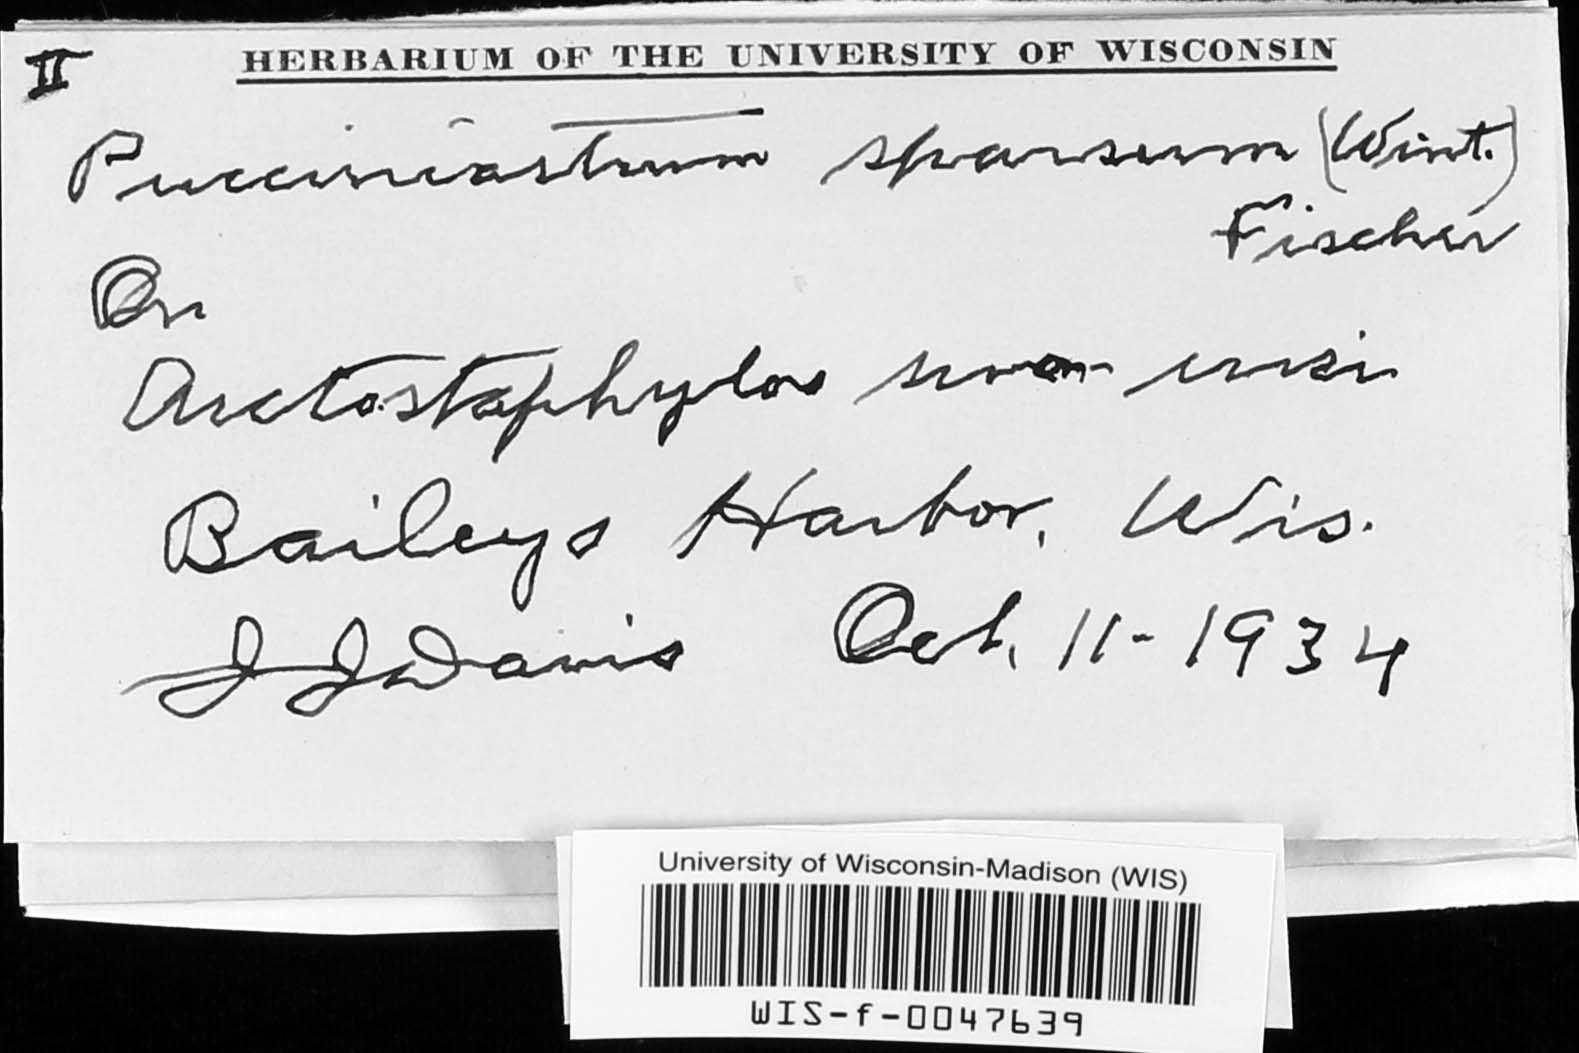 II
HERBARIUM OF THE UNIVERSITY OF WISCONSIN
Pucciniastrum sparsum (Wint.)
Fischer
On
Arctostaphylos uva-ursi
Baileys Harbor, Wis.
J J Davis Oct. 11-1934
University of Wisconsin-Madison (WIS)
WIS-f-0047639